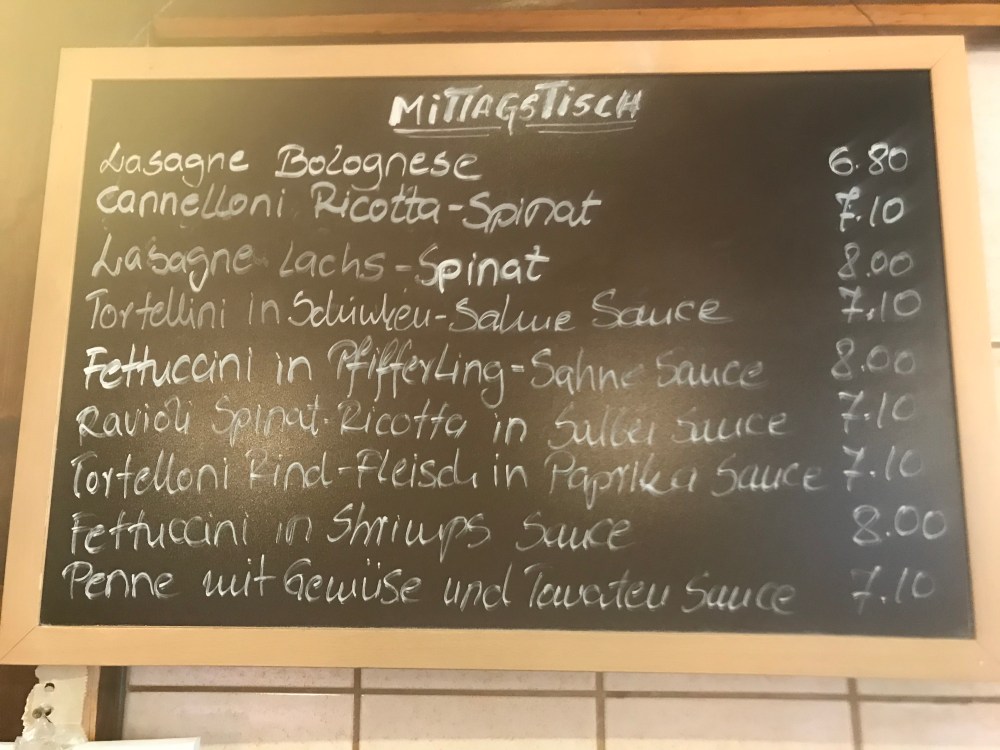 MITTAGSTISCH
Lasagne Bolognese 6.80
Cannelloni Ricotta-Spinat 7.10
Lasagne Lachs-Spinat 8.00
Tortellini in Schinken-Sahne Sauce 7.10
Fettuccini in Pfifferling-Sahne Sauce 8.00
Ravioli Spinat-Ricotta in Salbei Sauce 7.10
Tortelloni Rind-Fleisch in Paprika Sauce 7.10
Fettuccini in Shrimps Sauce 8.00
Penne mit Gemüse und Tomaten Sauce 7.10